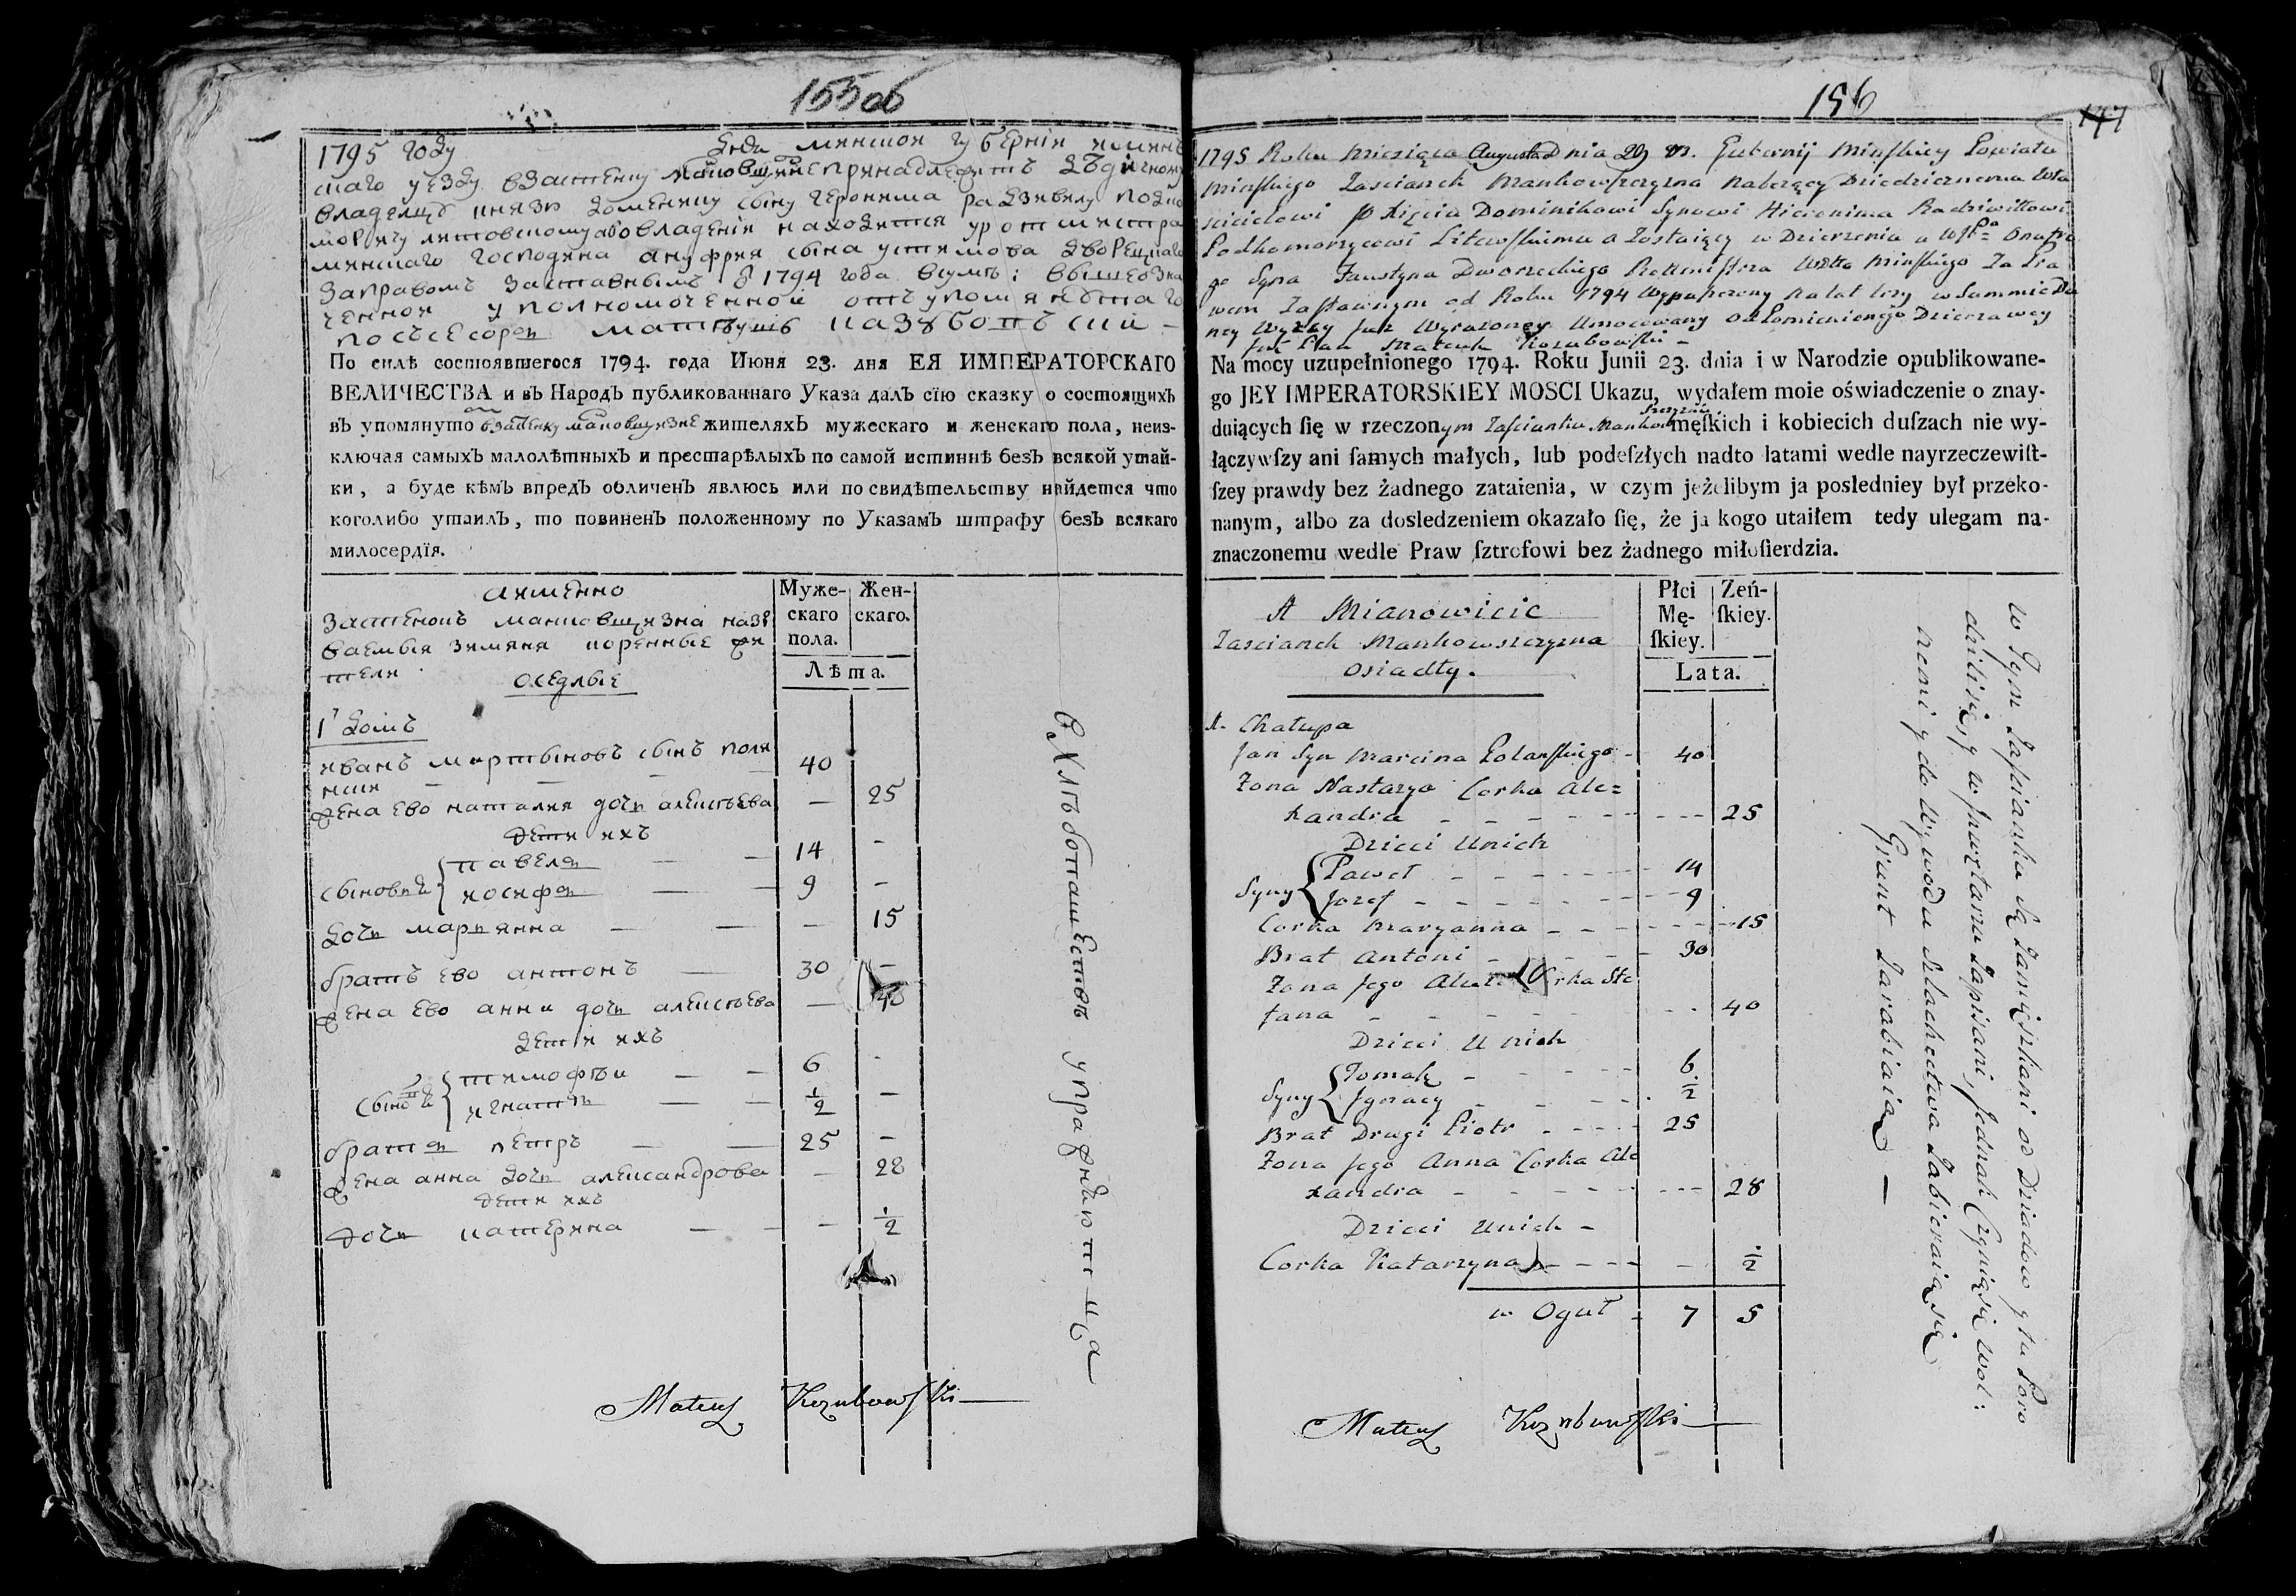 155 об
1795 году дня минской губернии минс
каго уезду взастенку маньовщизне принадлежитъ дѣдичному
владелцу князю доменику сыну героныма радзивилу подко
морычу литовскому а во владении находится у ротмистра
минскаго господина ануфрия сына устинова дворецкаго
заправомъ заставнымъ с 1794 года в сумѣ: вышеозна
ченной уполномоченной отъ упомянутаго
посесора матеушъ казубовъский –
По силѣ состоявшегося 1794. года Июня 23. дня ЕЯ ИМПЕРАТОРСКАГО
ВЕЛИЧЕСТВА и въ Народъ публикованнаго Указа далъ сїю сказку о состоящихъ
въ упомянуто взастенку маньовщизне жителяхъ мужескаго и женскаго пола, неиз-
ключая самыхъ малолѣтныхъ и престарѣлыхъ по самой истиннѣ безъ всякой утай-
ки, а буде кѣмъ впредъ обличенъ явлюсь или по свидѣтельству найдется что
коголибо утаилъ, то повиненъ положенному по Указамъ штрафу безъ всякаго
милосердїя.
аименно
Муже-
скаго
пола.
Жен-
скаго.
Лѣта.
застенокъ маньовщизна назы
ваемыя земяня коренные жи
тели
оседлые
1й домъ
иванъ мартыновъ сынъ поля
нски – – – – 40
жена ево наталия дочь алексѣева – 25
дети ихъ
сыновья { павелъ – – 14 -
иосифъ – – 9 -
дочь марьянна – – – 15
братъ ево антонъ – 30 –
жена ево анна дочь алексѣева – 40
дети ихъ
сыновья { тимофѣй – – 6 -
игнатъ – – 1/2 –
братъ петръ – – 25 –
жена анна дочь александрова – 28
дети ихъ
дочь катерина – – – 1/2
Хлѣбопашествѣ упражняются
Mateusz Kozubowski
156
147
1795 Roku Miesiąca Augusta Dnia 29 Gubernij Minskiey Powiatu
Minskiego Zascianek Mankowszczyzna Należący Dziedzicznemu Wła
scicielowi Xięcia Dominikowi Synowi Hieronima Radziwiłłowi
Podkomorzycowi Litewskiemu a Zostaiący w Dzierzeniu u WJPa Onufre
go Syna Faustyna Dworzeckiego Rotmistrza Wdtwa Minskiego Za Pra
wem Zastawnym od Roku 1794 Wypuszczony na lat trzy w Summie Da
ney Wyzey Juz Wyrazoney Umocowany od Pomienionego Dzierzawcy
Jmć Pan Mateusz Kozubowski –
Na mocy uzupełnionego 1794. Roku Junii 23. dnia i w Narodzie opublikowane-
go JEY IMPERATORSKIEY MOSCI Ukazu, wydałem moie oświadczenie o znay-
duiących ſię w rzeczonym Zascianku Mankowszczyznie męſkich i kobiecich duſzach nie wy-
łączywſzy ani ſamych małych, lub podeſzłych nadto latami wedle nayrzeczewiſt-
ſzey prawdy bez żadnego zataienia, w czym jeżelibym ja posledniey był przeko-
nanym, albo za dosledzeniem okazało ſię, że ja kogo utaiłem tedy ulegam na-
znaczonemu wedle Praw ſztrofowi bez żadnego miłoſierdzia.
A Mianowicie
Zascianek Mankowszczyzna
osiadły.
Płci
Mę-
ſkiey.
Zeń-
ſkiey.
Lata.
1. Chałupa
Jan Syn Marcina Polanskiego – 40
Zona Nastazya Corka Ale=
xandra – – – – – 25
Dzieci Unich
Syny { Paweł – – – – 14
Jozef – – – – 9
Corka Maryanna – – – 15
Brat Antoni – – – 30
Zona Jego Corka Ste
fana – – – – 40
Dzieci Unich
Syny { Tomasz – – – 6
Jgnacy – – – 1/2
Brat Drugi Piotr – – – 25
Zona Jego Anna Corka Ale
xandra – – – – 28
Dzieci Unich –
Corka Katarzyna – – – – 1/2
w Oguł – 7 5
Mateusz Kozubowski
W Tym Zascianku są Zamięszkani od Dziadow y tu Poro
dzilisię y w Inwętarzu Zapisani, Jednak Czynią się Wol:
nemi y do Wywodu Szlachectwa Zabieraią się
Grunt Zarabiaią –